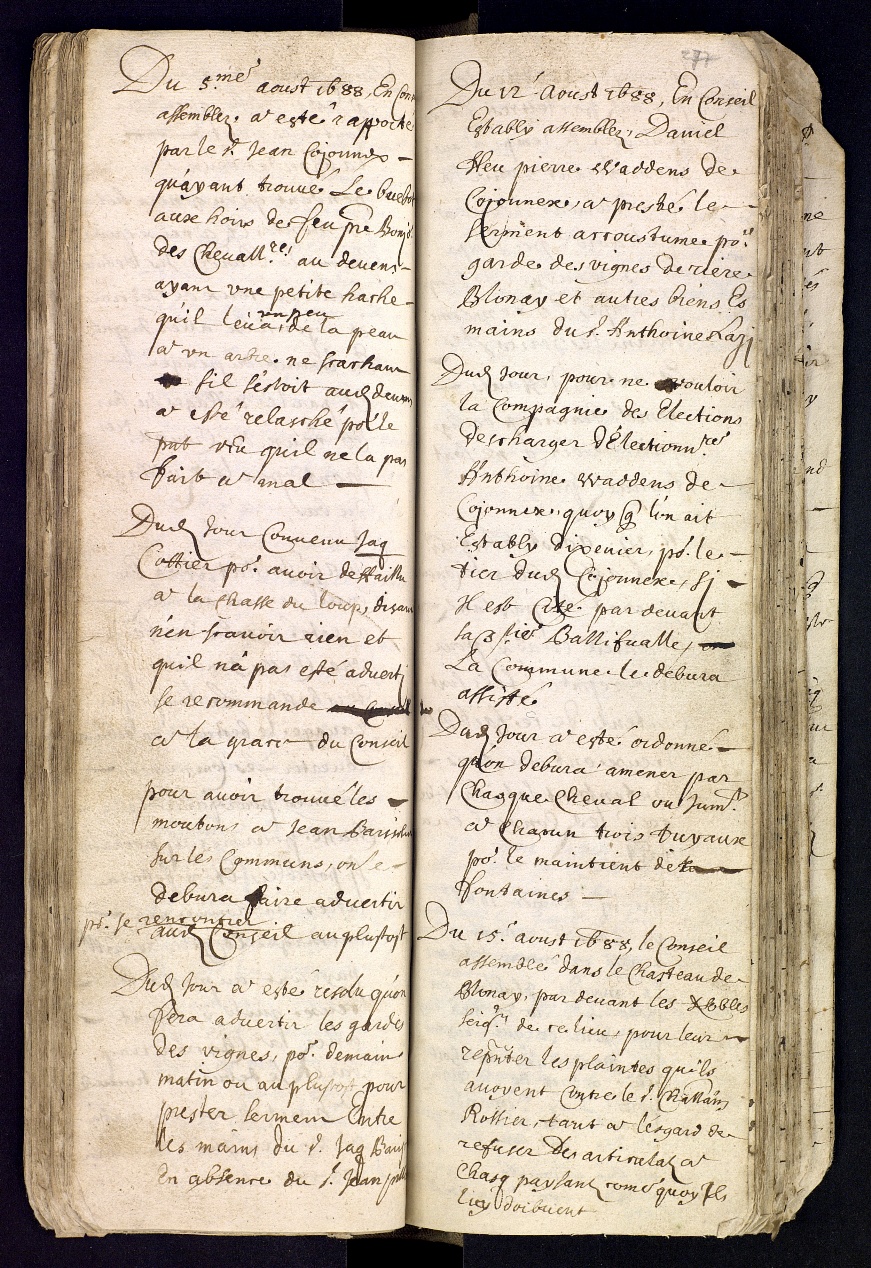 Du 5.me aoust 1688, En Con
assemblez a esté rapporté
par le S.r Jean Cojonnex
qu'ayant trouué Le
aux hoirs de feu pre
des Cheuall.res au deuens
ayant vne petite hache
qu'il leua vn peu de la peau
a vn arbre ne scachant
sil sestoit aud deuens
a esté relasché po.r le
put veu quil ne la pas
fait a mal
Dud Jour Conuenu Jaq
Cottier po.r auoir deffailli
a la chasse du loup, disant
n'en scauoir rien et
quil n'a pas esté aduerti
se recommande
a la grace du Conseil
pour auoir trouué les
moutons a Jean
sur les Communs, on le
debura faire aduertir
po.r se rencontrer
aud Conseil au plustost
Dud Jour a esté resolu qu'on
fera aduertir les gardes
des vignes, po.r demain
matin ou au plustost pour
prester serment Entre
les mains du S.r Jaq
En absence du S.r Jean
277
Du 12.e Aoust 1688, En Conseil
Establi assemblez, Daniel
Heu pierre Waddens de
Cojonnex, a presté le
serment accoustumé po.r
garde des vignes de riere
Blonay et autres biens Es
mains du S.r Anthoine
Dud Jour, pour ne vouloir
la Compagnie des Elections
descharger d'Election
Anthoine Waddens de
Cojonnex, quoy q l'on ait
Establi dixenier, po.r le
tier dud Cojonnex, si
Il est Cité par deuant
sa Ballifualle,
La Commune le debura
assisté
Dud Jour a esté ordonné
qu'on debura amener par
Chasque Cheual ou Jum.t
a Chacun trois tuyaux
po.r le maintient de
fontaines
Du 15.e aoust 1688, le Conseil
assemblé dans le Chasteau de
Blonay, par deuant les Nobles
Seig.rs de ce lieu, pour leur
les plaintes quils
auoyent Contre le S.r Chastelain
Rottier, tant a lesgard de
refuser Des articulat a
Chasq paysant, come quoy Ils
luy doibuent